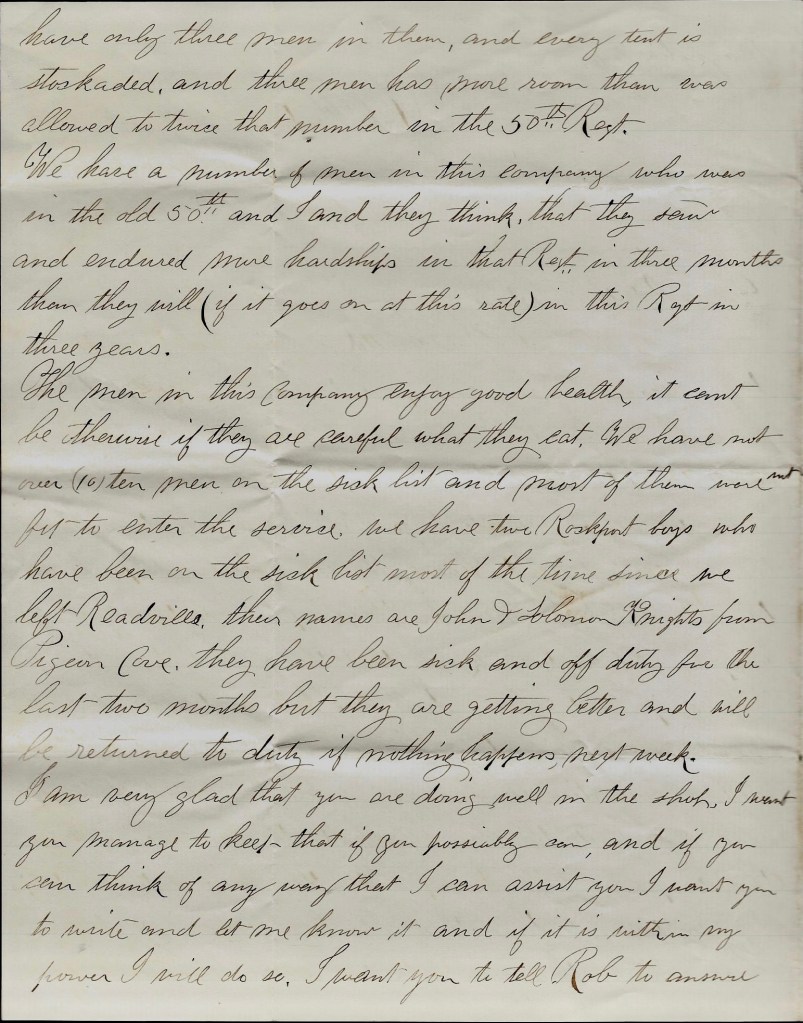 have only three men in them, and every tent is
stockaded, and three men has more room than was
allowed to twice that number in the 50th Regt.
We have a number of men in this company who was
in the old 50th and I and they think, that they saw
and endured more hardships in that Regt. in three months
than they will (if it goes on at this rate) in this Regt in
three years.
The men in this Company enjoy good health, it cant
be otherwise if they are careful what they eat. We have not
over (10) ten men on the sick list and most of them were not
fit to enter the service. we have two Rockport boys who
have been on the sick list most of the time since we
left Readville. their names are John & Solomon Knights from
Pigeon Cove. they have been sick and off duty for the
last two months but they are getting better and will
be returned to duty if nothing happens, next week.
I am very glad that you are doing well in the shop. I want
you manage to keep that if you possiably can, and if you
can think of any way that I can assist you I want you
to write and let me know it and if it is within my
power I will do so. I want you to tell Rob to answer